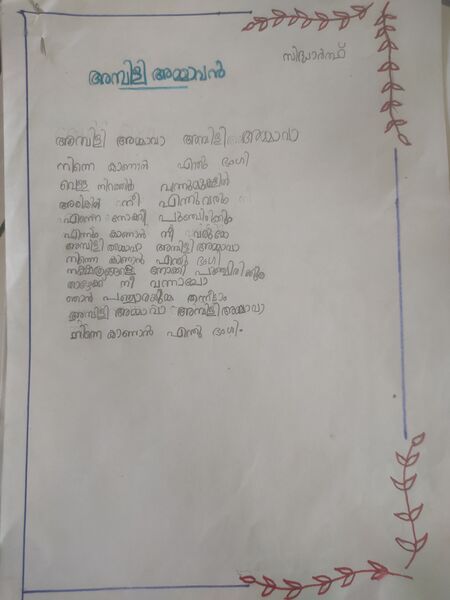 സിദ്ധാർത്ഥ്
അമ്പിളി അമ്മാവൻ
അമ്പിളി അമ്മാവാ അമ്പിളി അമ്മാവാ
നിന്നെ കാണാൻ എന്തു ഭംഗി
വെള്ള നിറത്തിൽ
അരികിൽ നീ എന്നുവരും
എന്നെ നോക്കി പുഞ്ചിരിക്കും
എന്നും കാണാൻ നീ വരുമോ
അമ്പിളി അമ്മാവാ അമ്പിളി അമ്മാവാ
നിന്നെ കാണാൻ എന്തു ഭംഗി
നക്ഷത്രങ്ങളെ നോക്കി പുഞ്ചിരിക്കുന്ന
താഴേക്ക് നീ വന്നാലോ
ഞാൻ പഞ്ചാരയുമ്മ തന്നീടാം
അമ്പിളി അമ്മാവാ അമ്പിളി അമ്മാവാ
നിന്നെ കാണാൻ എന്തു ഭംഗി.